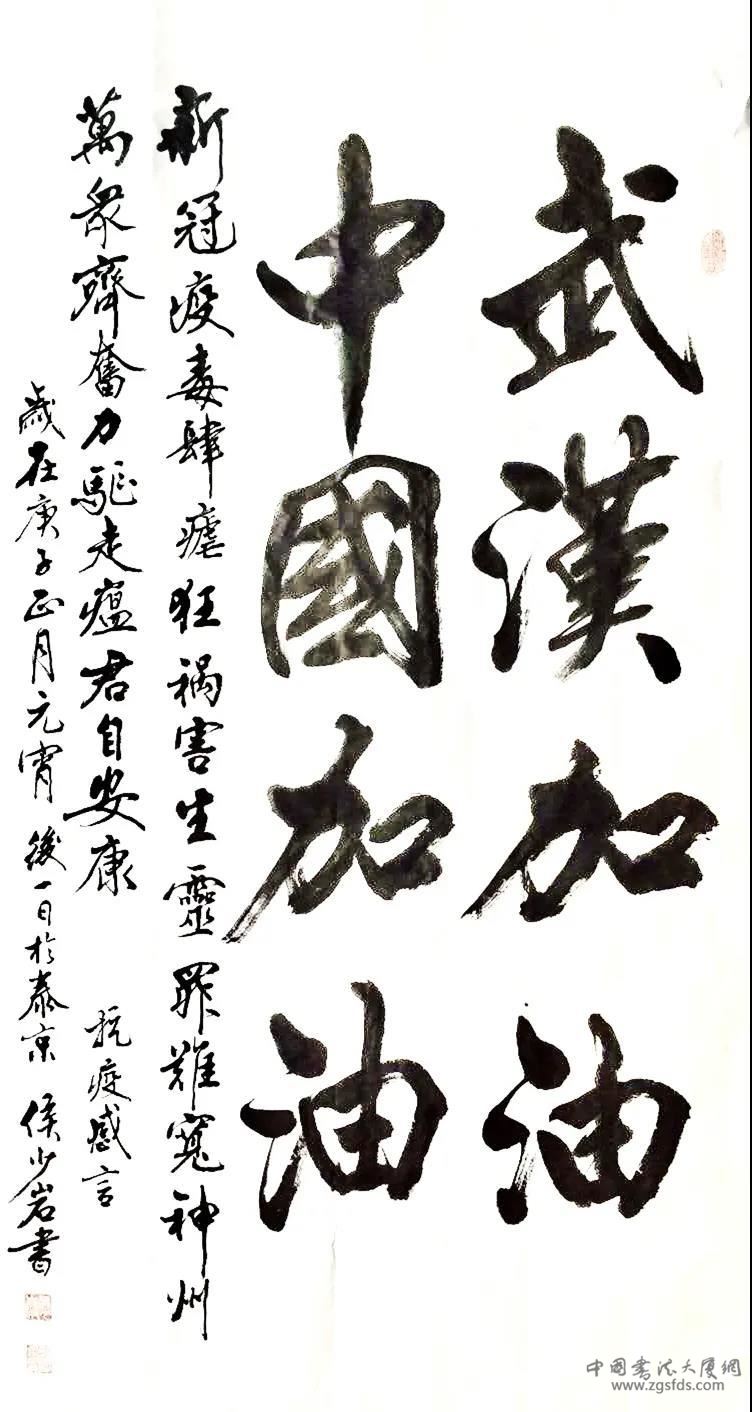 武漢加油
中國加油
新冠疫毒肆虐狂禍害生靈罪難寬神州
萬眾齊奮力驅走瘟君自安康 抗疫感言
歲在庚子正月元宵後一日於泰京 侯少岩書
中国书法大厦網
www.zgsfds.com